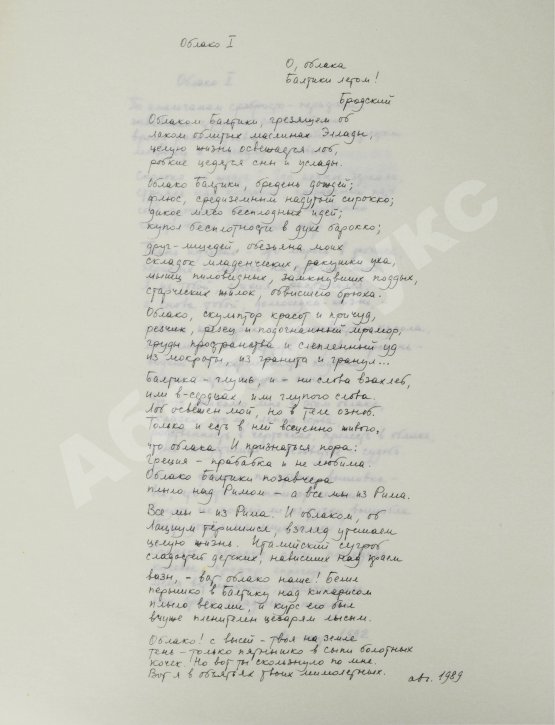 Облако I
О, облака
Балтики летом!
Бродский
Облаком Балтики, грезящем об
лаком облитых маслинах Эллады,
целую жизнь освещается лоб,
робкие цедятся сны и услады.
Облако Балтики, бредень дождей;
флюс, средиземным надутый сирокко;
дикое мясо бесплодных идей;
купол бесплотности в духе барокко;
друг-лицедей, обезьяна моих
складок младенческих, ракушки уха,
мышц пиловидных, замкнувших поддых,
старческих щёлок, обвисшего брюха.
Облако, скульптор красот и причуд,
резчик, резец и податнный мрамор,
груды пространства и слепленный уд
из мокроты, из гранита и гранул...
Балтика - глушь, и - ни слова взахлёб,
или в-сердцах, или глупого слова.
Лоб освещён мой, но в теле озноб.
Только и есть в ней всеценно живого,
что облака. И признаться пора:
Греция - прабабка и не любима.
Облако Балтики позавчера
плыло над Римом - а все мы из Рима.
Все мы - из Рима. И облаком, об
Лациум тёршимся, взгляд утешаем
целую жизнь. Италийский сугроб
сладостей детских, нависших над краем
вазы, - вот облако наше! Белые
пёрышко в Балтику над кипарисом
плыло веками, и курс его был
вчуже пленителен цезарям лысым.
Облако! с высей - твоя на земле
тень - только пятнышко в сыпи болотных
кочек. Но вот ты скользнуло по мне.
Вот я в объятьях твоих мимолётных.
авг. 1989
Абукс